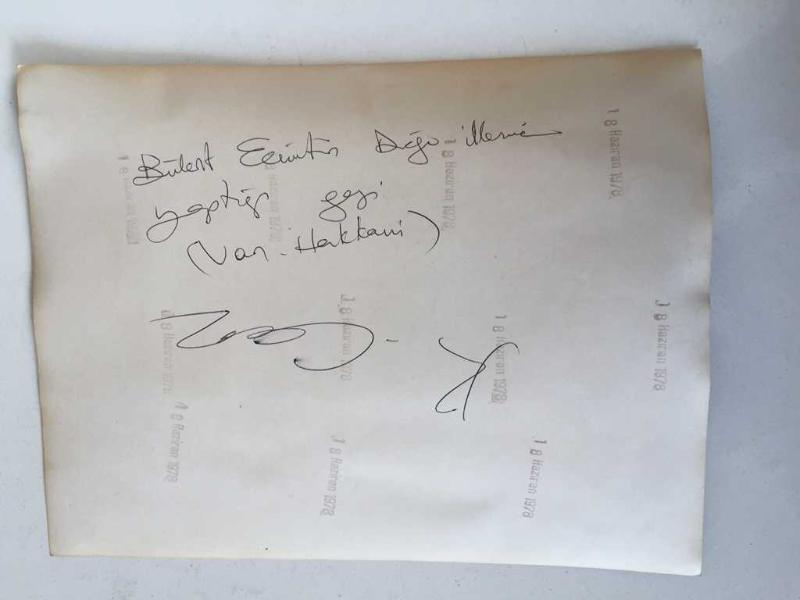 Bülent Ecevit'in Doğu illerine
yaptığı gezi
(Van-Hakkari)
18 Haziran 1978
18 Haziran 1978
18 Haziran 1978
18 Haziran 1978
18 Haziran 1978
18 Haziran 1978
18 Haziran 1978
18 Haziran 1978
18 Haziran 1978
18 Haziran 1978